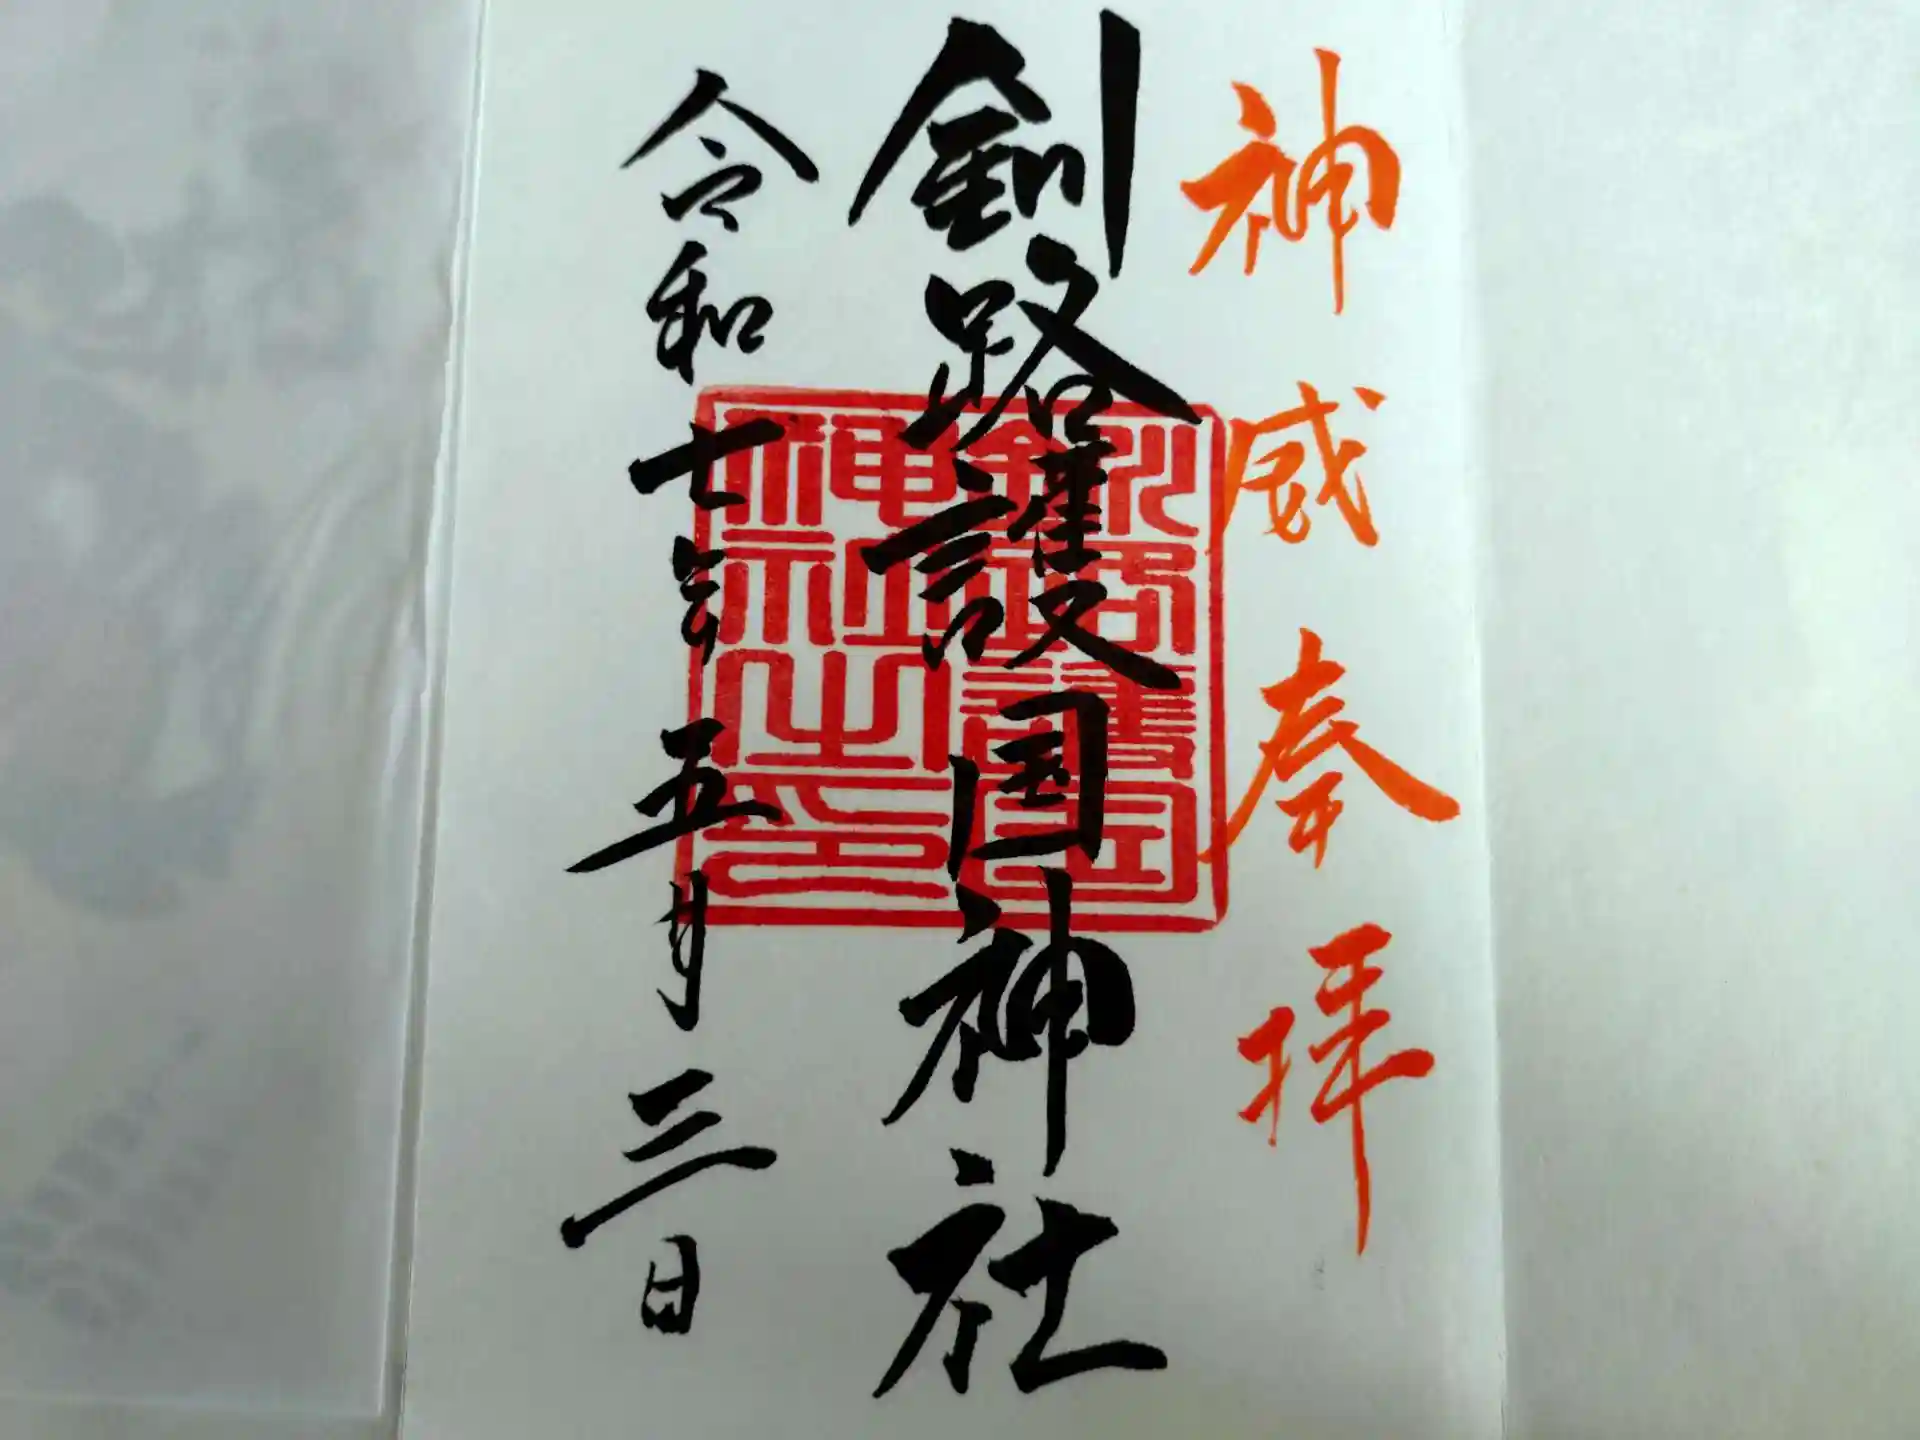 神威奉拝
釧路護国神社
釧路護國神社之印
令和七年五月三日